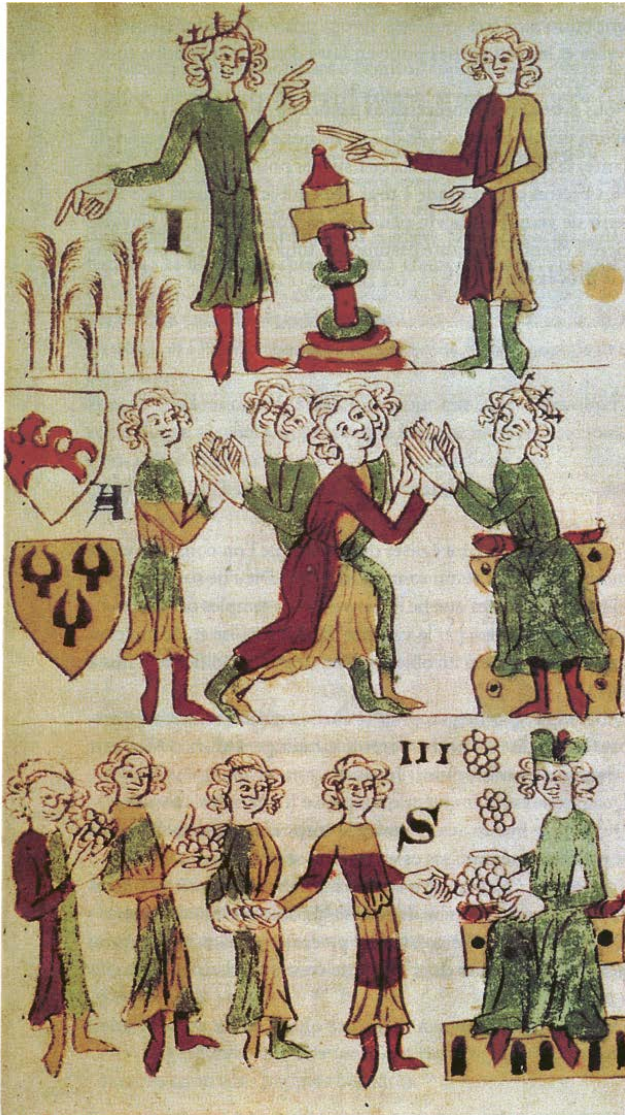 I
A
III
S